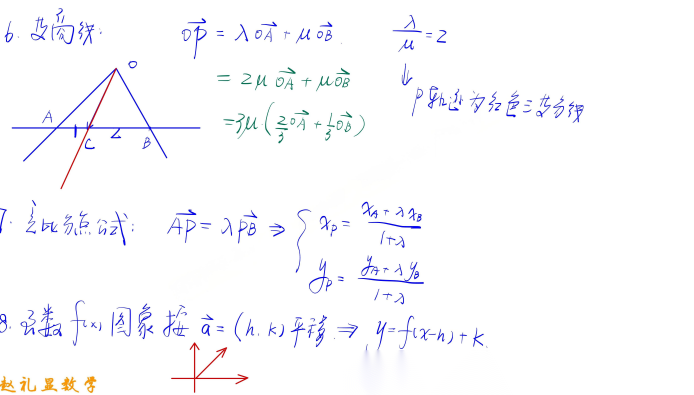 6. 变商线: $\overrightarrow{OP} = \lambda \overrightarrow{OA} + \mu \overrightarrow{OB}$. $\frac{\lambda}{\mu} = 2$
$= 2\mu \overrightarrow{OA} + \mu \overrightarrow{OB}$
$= 3\mu \left( \frac{2}{3} \overrightarrow{OA} + \frac{1}{3} \overrightarrow{OB} \right)$
↓
P轨迹为红色三变分线
O
A 1 C 2 B
7. 定比分点公式: $\overrightarrow{AP} = \lambda \overrightarrow{PB} \Rightarrow \begin{cases} x_P = \frac{x_A + \lambda x_B}{1+\lambda} \\ y_P = \frac{y_A + \lambda y_B}{1+\lambda} \end{cases}$
8. 函数 f(x) 图象按 $\vec{a}$ = (h, k) 平移 ⇒ y = f(x-h) + k.
赵礼显数学